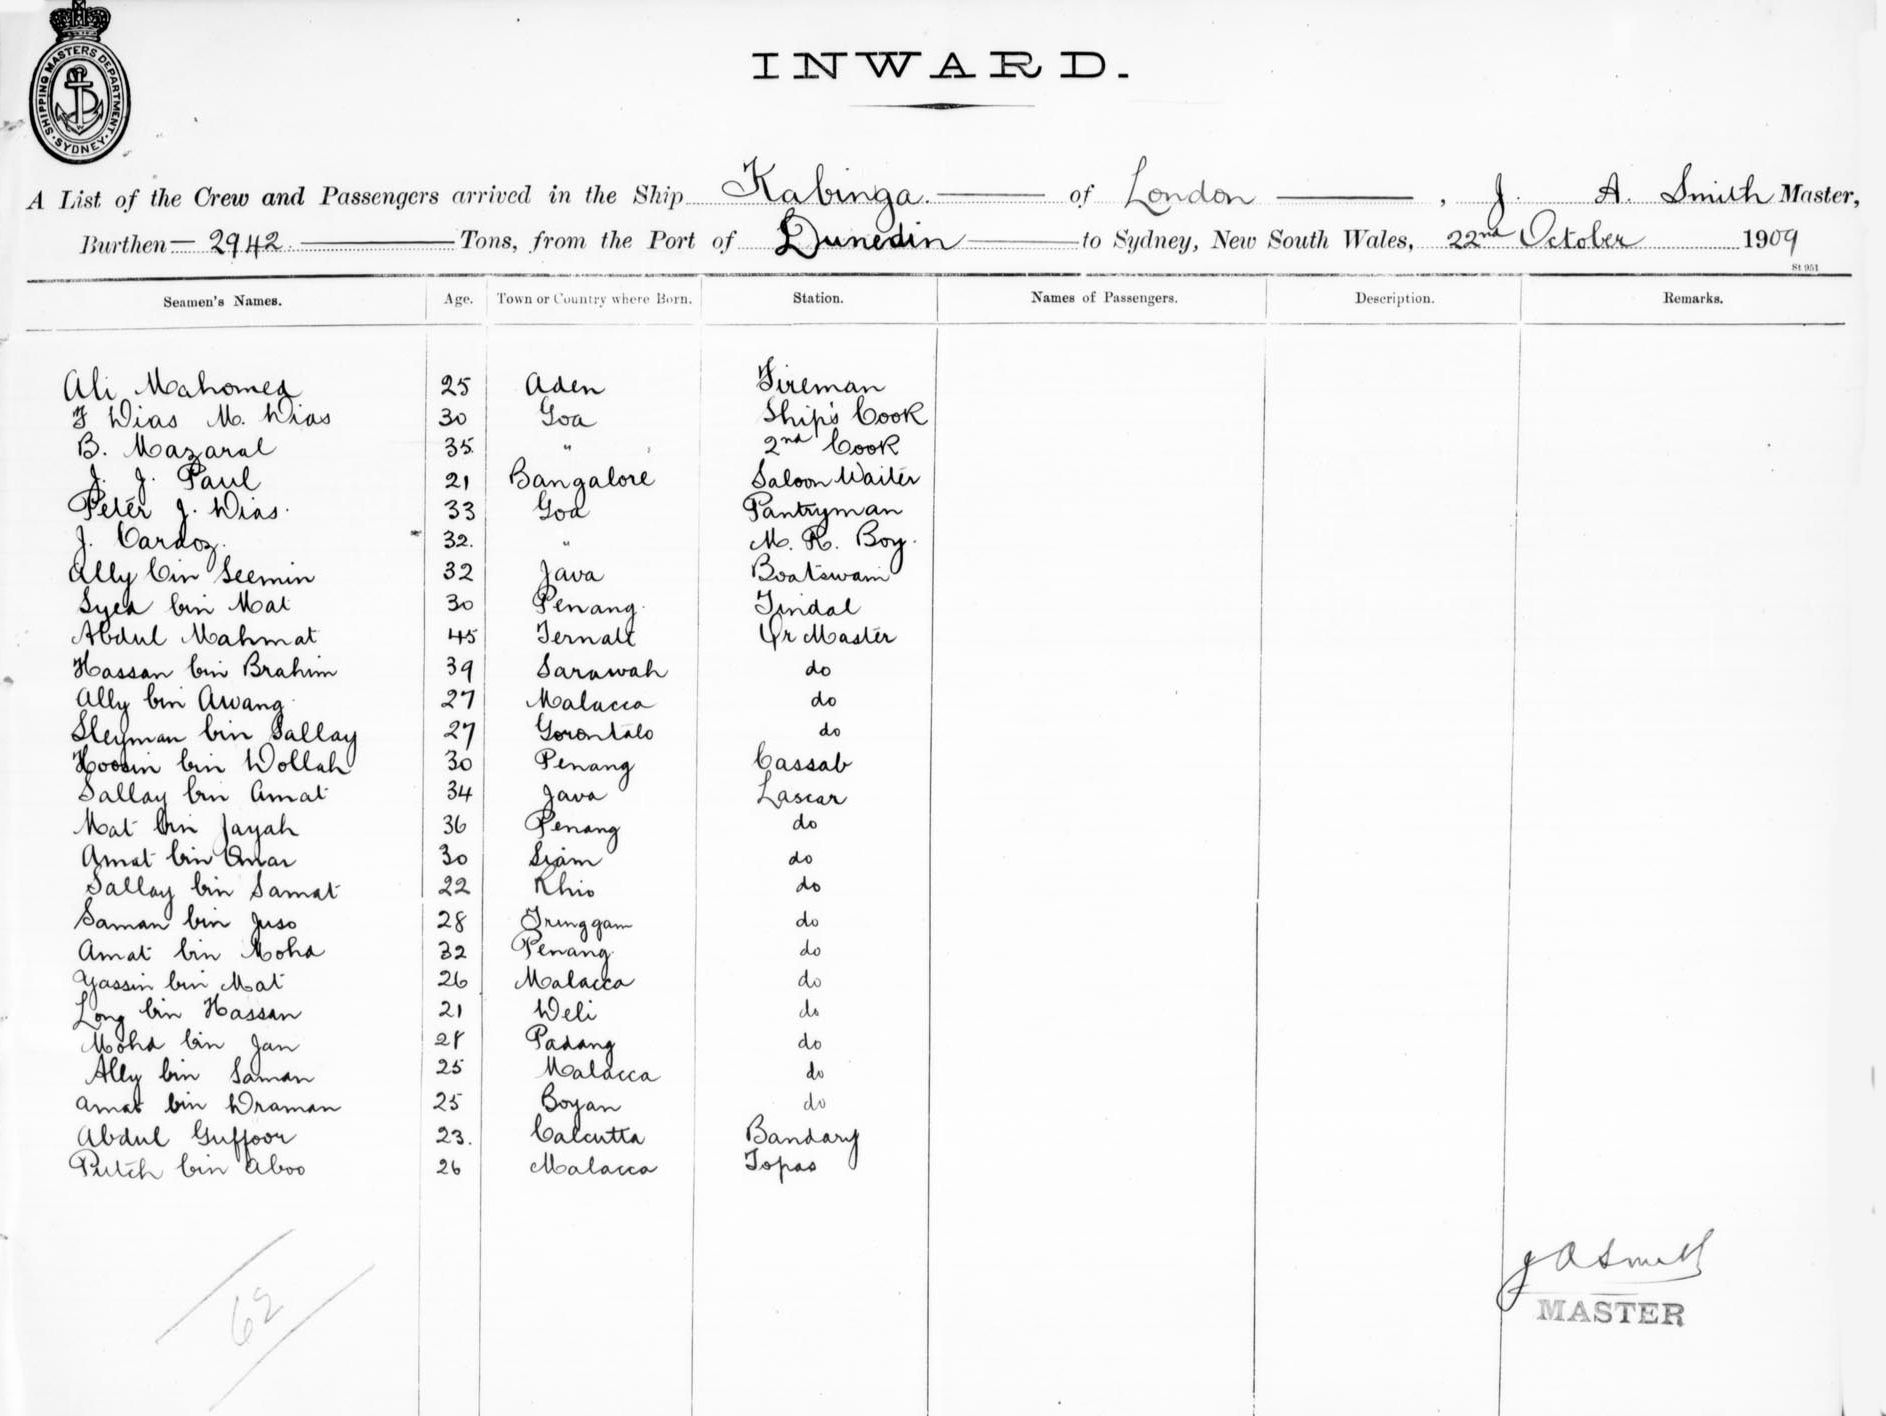 SHIPPING MASTERS DEPARTMENT · SYDNEY ·
INWARD.
A List of the Crew and Passengers arrived in the Ship Kabinga. of London , J. A. Smith Master,
Burthen 2942 Tons, from the Port of Dunedin to Sydney, New South Wales, 22nd October 1909
St 951
Seamen's Names. Age. Town or Country where Born. Station. Names of Passengers. Description. Remarks.
Ali Mahomed 25 Aden Fireman
F Dias M. Dias 30 Goa Ship's Cook
B. Mazaral 35 " 2nd Cook
J. J. Paul 21 Bangalore Saloon Waiter
Peter J. Dias. 33 Goa Pantryman
J. Cardoz. 32. " M. R. Boy.
Ally bin Seemin 32 Java Boatswain
Syed bin Mat 30 Penang. Tindal
Abdul Mahmat 45 Ternate Qr Master
Hassan bin Brahim 39 Sarawah do
Ally bin Awang 27 Malacca do
Sleyman bin Sallay 27 Gorontalo do
Hoosin bin Dollah 30 Penang Cassab
Sallay bin Amat 34 Java Lascar
Mat bin Jayah 36 Penang do
Amat bin Omar 30 Siam do
Sallay bin Samat 22 Rhio do
Saman bin Juso 28 Tringgam do
Amat bin Mohd 32 Penang. do
Yassin bin Mat 26 Malacca do
Long bin Hassan 21 Deli do
Mohd bin Jan 28 Padang do
Ally bin Saman 25 Malacca do
Amat bin Draman 25 Boyan do
Abdul Guffoor 23. Calcutta Bandary
Putch bin Aboo 26 Malacca Topas
62
J A Smith
MASTER